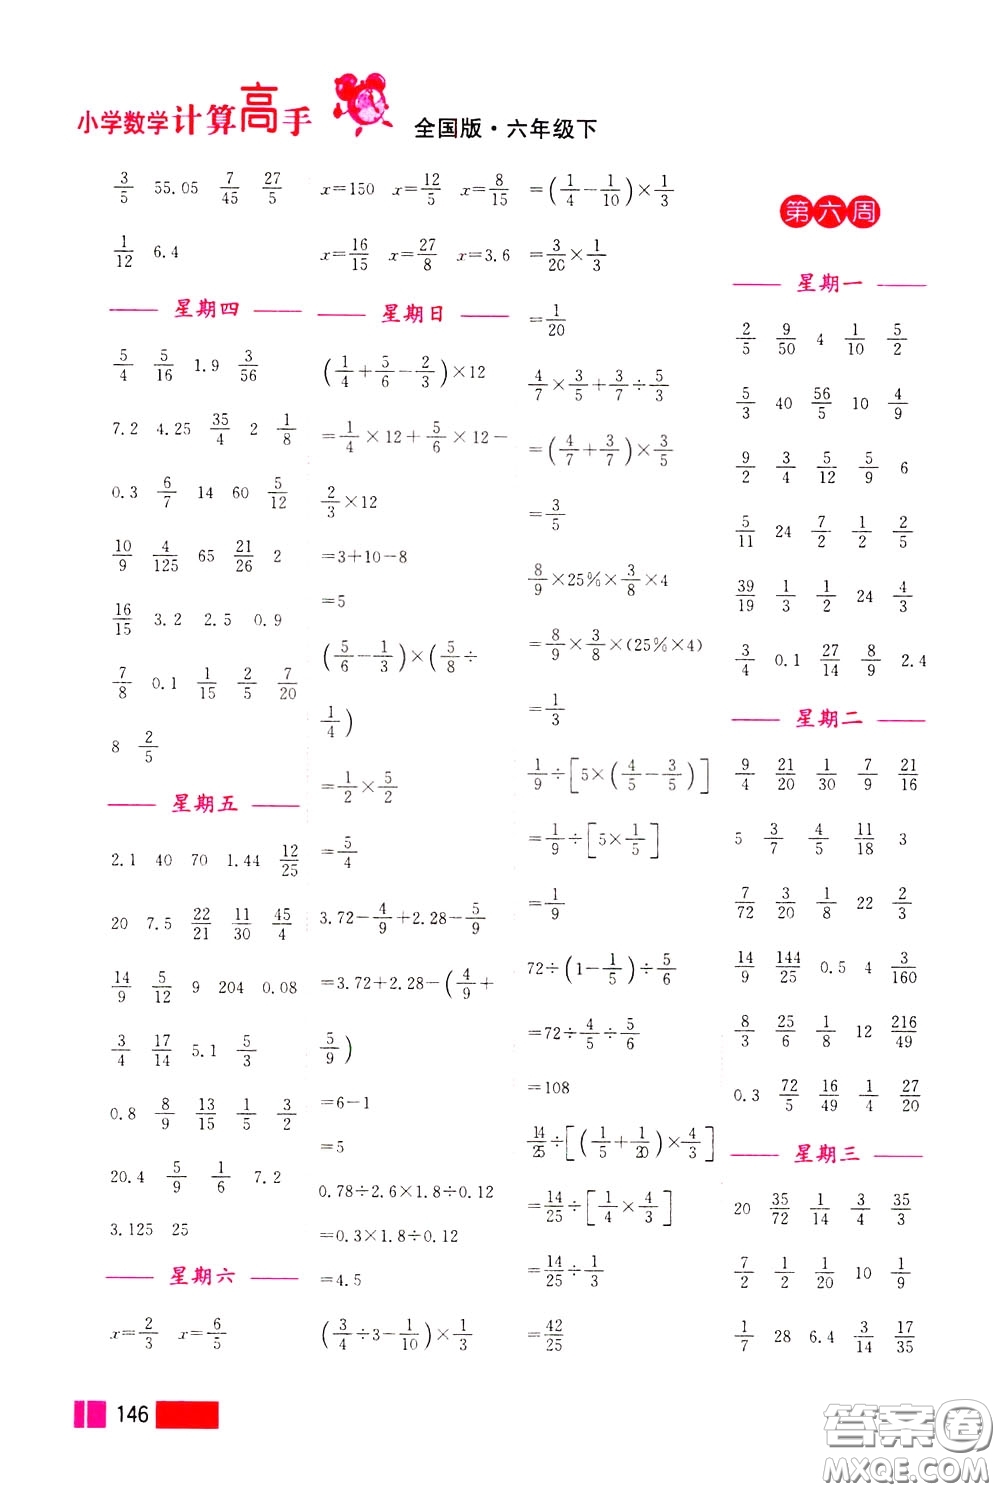 小学数学计算高手 全国版·六年级下
3/5 55.05 7/45 27/5
1/12 6.4
星期四
5/4 5/16 1.9 3/56
7.2 4.25 35/4 2 1/8
0.3 6/7 14 60 5/12
10/9 4/125 65 21/26 2
16/15 3.2 2.5 0.9
7/8 0.1 1/15 2/5 7/20
8 2/5
星期五
2.1 40 70 1.44 12/25
20 7.5 22/21 11/30 45/4
14/9 5/12 9 204 0.08
3/4 17/14 5.1 5/3
0.8 8/9 13/15 1/5 3/2
20.4 5/9 1/6 7.2
3.125 25
星期六
x=2/3 x=6/5
x=150 x=12/5 x=8/15
x=16/15 x=27/8 x=3.6
星期日
(1/4+5/6-2/3)×12
=1/4×12+5/6×12-
2/3×12
=3+10-8
=5
(5/6-1/3)×(5/8÷
1/4)
=1/2×5/2
=5/4
3.72-4/9+2.28-5/9
=3.72+2.28-(4/9+
5/9)
=6-1
=5
0.78÷2.6×1.8÷0.12
=0.3×1.8÷0.12
=4.5
(3/4÷3-1/10)×1/3
=(1/4-1/10)×1/3
=3/20×1/3
=1/20
4/7×3/5+3/7÷5/3
=(4/7+3/7)×3/5
=3/5
8/9×25%×3/8×4
=8/9×3/8×(25%×4)
=1/3
1/9÷[5×(4/5-3/5)]
=1/9÷[5×1/5]
=1/9
72÷(1-1/5)÷5/6
=72÷4/5÷5/6
=108
14/25÷[(1/5+1/20)×4/3]
=14/25÷[1/4×4/3]
=14/25÷1/3
=42/25
第六周
星期一
2/5 9/50 4 1/10 5/2
5/3 40 56/5 10 4/9
9/2 3/4 5/12 5/9 6
5/11 24 7/2 1/2 2/5
39/19 1/3 1/2 24 4/3
3/4 0.1 27/14 8/9 2.4
星期二
9/4 21/20 1/30 7/9 21/16
5 3/7 4/5 11/18 3
7/72 3/20 1/8 22 2/3
14/9 144/25 0.5 4 3/160
8/3 25/6 1/8 12 216/49
0.3 72/5 16/49 1/4 27/20
星期三
20 35/72 1/14 3/4 35/3
7/2 1/2 1/20 10 1/9
1/7 28 6.4 3/14 17/35
146
答案卷
MXQE.COM